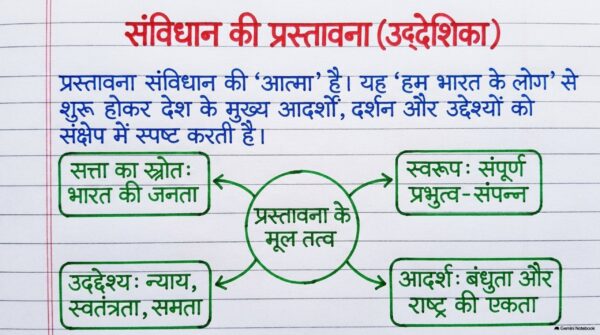 संविधान की प्रस्तावना (उद्देशिका)
प्रस्तावना संविधान की ‘आत्मा’ है। यह ‘हम भारत के लोग’ से
शुरू होकर देश के मुख्य आदर्शों, दर्शन और उद्देश्यों को
संक्षेप में स्पष्ट करती है।
सत्ता का स्रोतः
भारत की जनता
स्वरूपः संपूर्ण
प्रभुत्व-संपन्न
प्रस्तावना के
मूल तत्व
उद्देश्यः न्याय,
स्वतंत्रता, समता
आदर्शः बंधुता और
राष्ट्र की एकता
Gemini Notebook